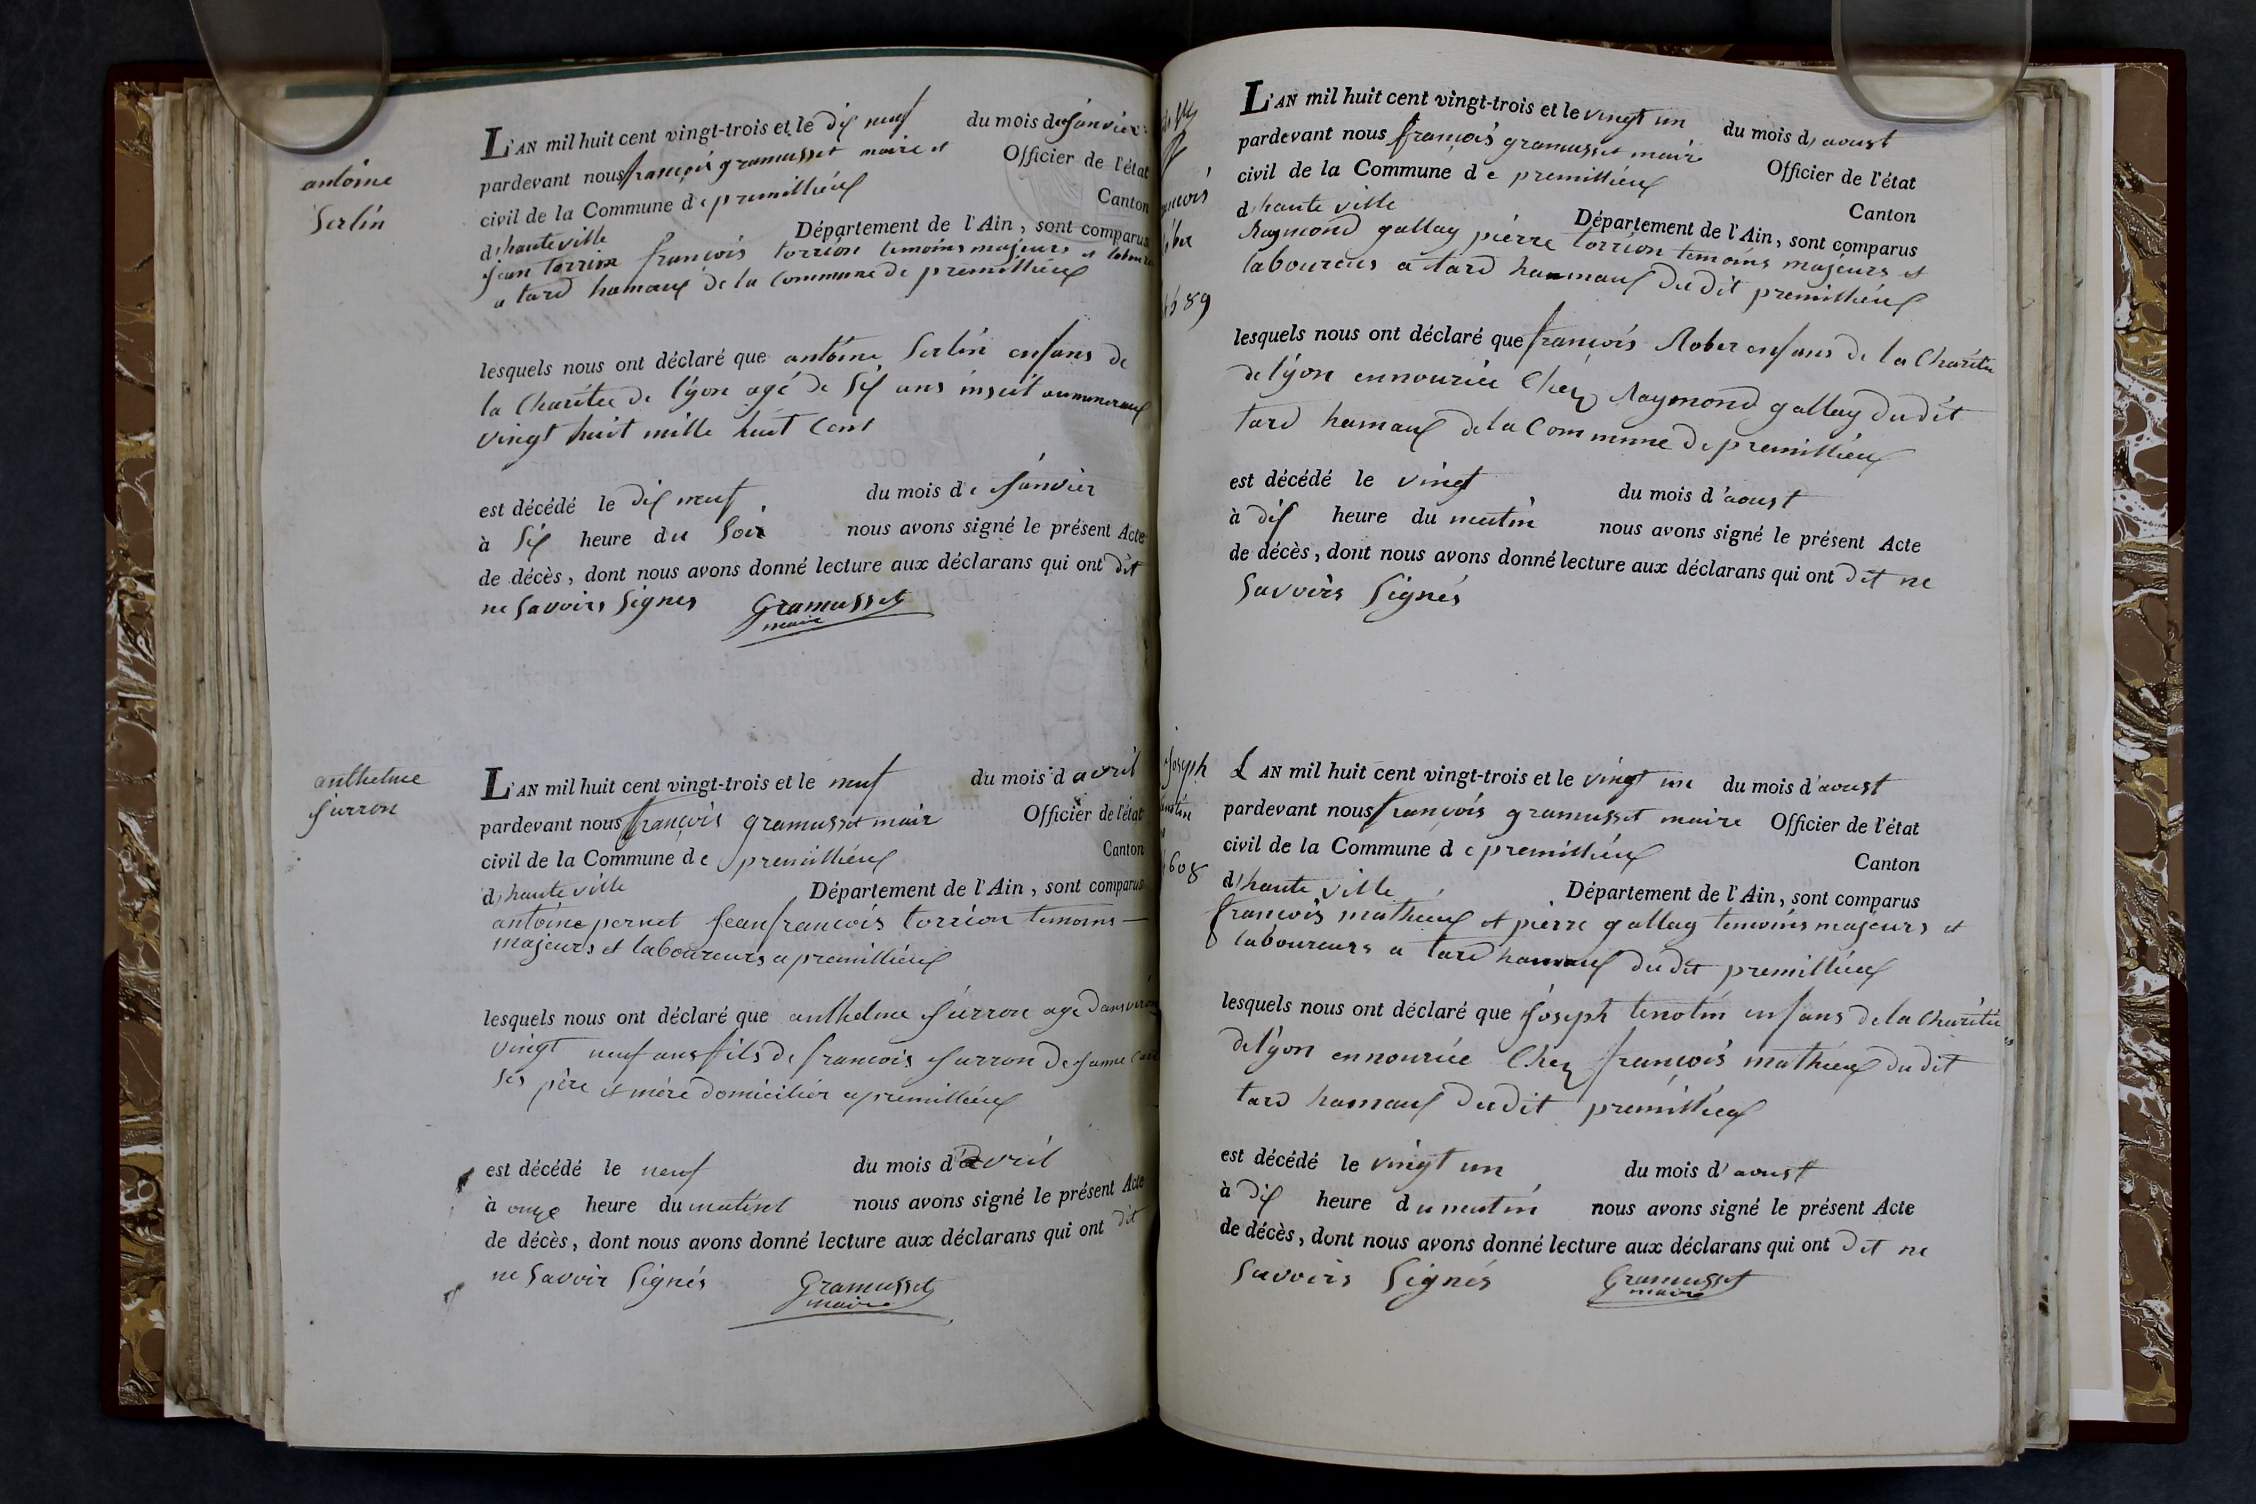 antoine
Serlin
L'AN mil huit cent vingt-trois et le dix neuf du mois de janvier
pardevant nous françois gramusset maire et Officier de l'état
civil de la Commune de premillieux Canton
d'hauteville Département de l'Ain, sont comparus
jean torrion françois torrion temoins majeurs et
a tard hamaux de la Commune de premillieux
lesquels nous ont déclaré que antoine Serlin enfans de
la Charitée de lÿon agé de Six ans inscit aunumeraux
vingt huit mille huit Cent
est décédé le dix neuf du mois de janvier
à Six heure du Soir nous avons signé le présent Acte
de décès, dont nous avons donné lecture aux déclarans qui ont dit
ne Savoirs Signes Gramusset
maire
anthelme
jurron
L'AN mil huit cent vingt-trois et le neuf du mois d avril
pardevant nous françois gramusset maire Officier de l'état
civil de la Commune de premillieux Canton
d'hauteville Département de l'Ain, sont comparus
antoine pernet jean françois torrion temoins
majeurs et laboureurs a premillieux
lesquels nous ont déclaré que anthelme jurron age
vingt neuf ans fils de francois jurron De janne
Ses père et mére domicilier a premillieux
est décédé le neuf du mois d'avril
à onze heure du matint nous avons signé le présent Acte
de décès, dont nous avons donné lecture aux déclarans qui ont dit
ne Savoir Signés Gramusset
maire
L'AN mil huit cent vingt-trois et le vingt un du mois d'aoust
pardevant nous françois gramusset maire Officier de l'état
civil de la Commune de premillieux Canton
d'haute ville Département de l'Ain, sont comparus
Raymond gallay pierre torrion temoins majeurs et
laboureurs a tard hammaux du dit premillieux
589
lesquels nous ont déclaré que françois Rober enfans de la Charitée
de lÿon ennouriée Chez Raymond gallay du dit
tard hamaux de la Commune de premillieux
est décédé le vingt du mois d'aoust
à dix heure du matin nous avons signé le présent Acte
de décès, dont nous avons donné lecture aux déclarans qui ont dit ne
Savoirs Signés
joseph
608
L'AN mil huit cent vingt-trois et le vingt un du mois d'aoust
pardevant nous françois gramusset maire Officier de l'état
civil de la Commune de premillieux Canton
d'haute ville Département de l'Ain, sont comparus
françois mathieux et pierre gallay temoins majeurs et
laboureurs a tard hamaux du dit premillieux
lesquels nous ont déclaré que joseph tenotin enfans de la Charitée
de lÿon ennouriée Chez françois mathieux du dit
tard hamaux du dit premillieux
est décédé le vingt un du mois d'aoust
à dix heure du matin nous avons signé le présent Acte
de décès, dont nous avons donné lecture aux déclarans qui ont dit ne
Savoirs Signés Gramusset
maire